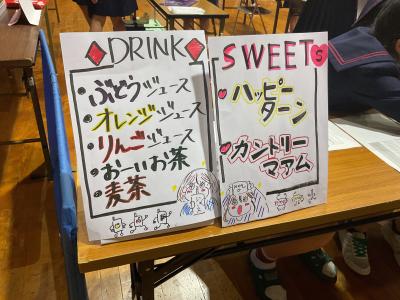 DRINK
ぶどうジュース
オレンジジュース
りんごジュース
おーいお茶
麦茶
SWEETS
ハッピー
ターン
カントリー
マアム